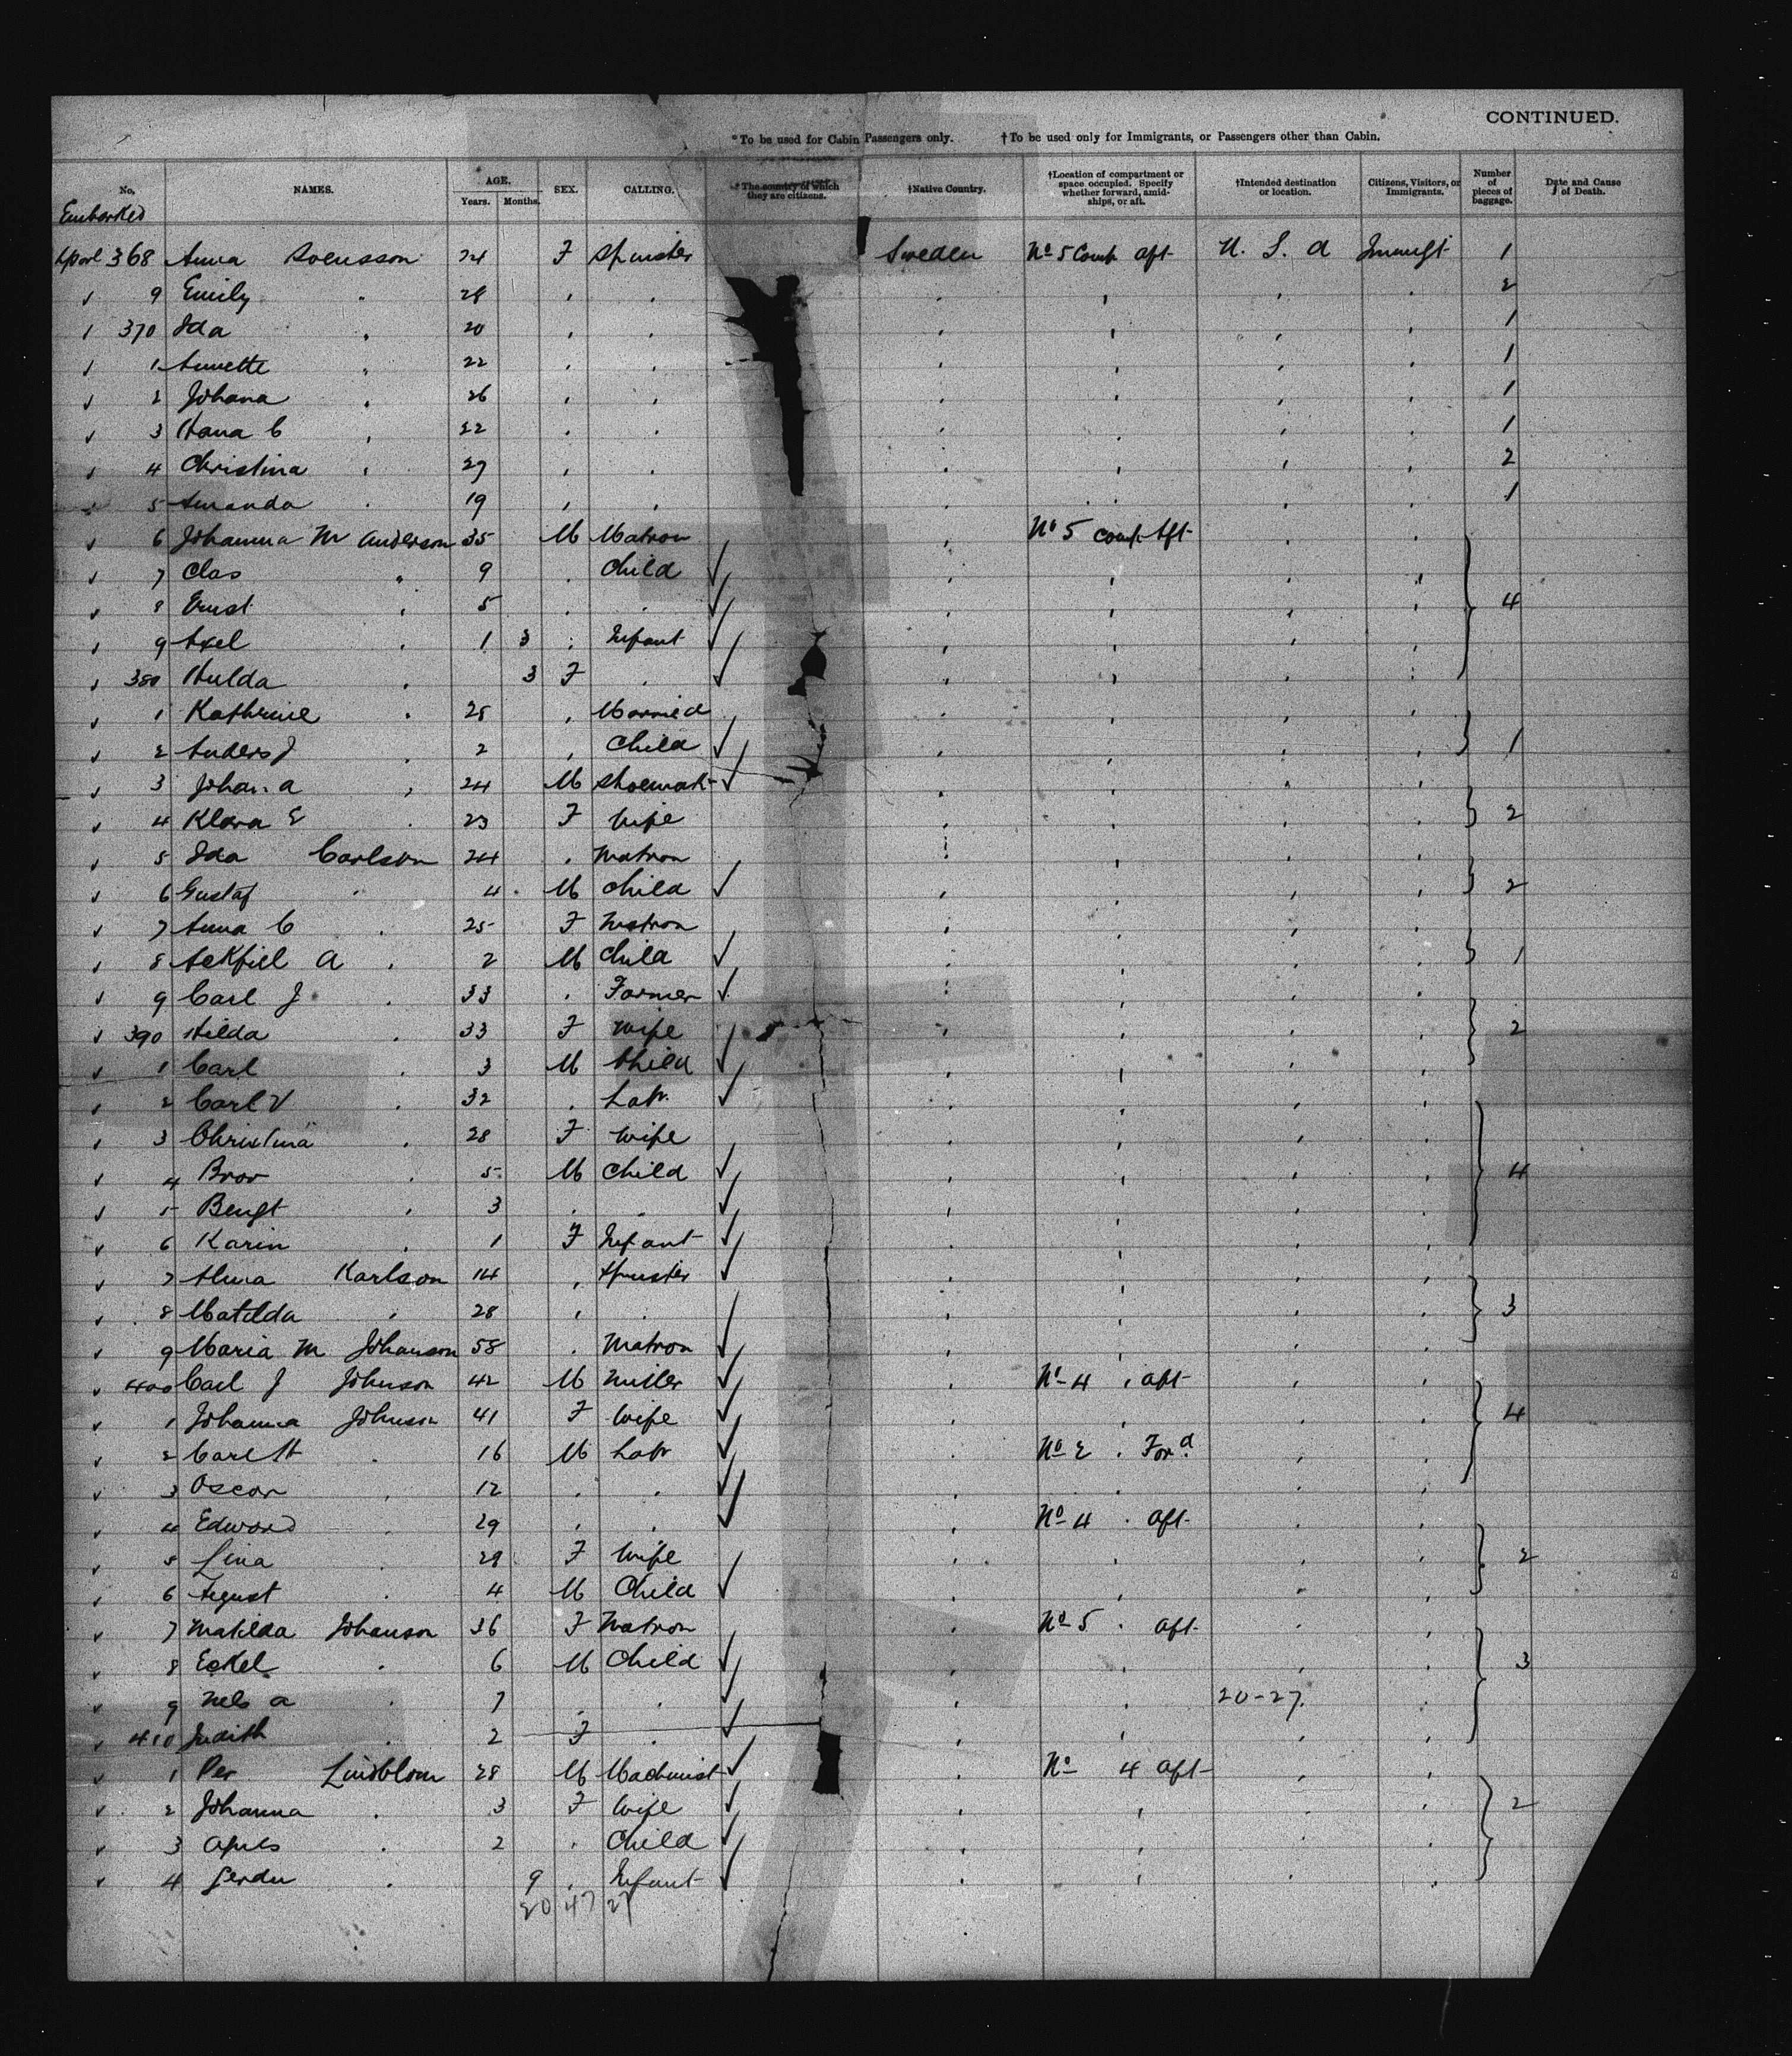 CONTINUED.
*To be used for Cabin Passengers only. †To be used only for Immigrants, or Passengers other than Cabin.
No. NAMES. AGE. Years. Months. SEX. CALLING. *The country of which they are citizens. †Native Country. †Location of compartment or space occupied. Specify whether forward, amidships, or aft. †Intended destination or location. Citizens, Visitors, or Immigrants. Number of pieces of baggage. Date and Cause of Death.
Embarked
368 Anna Svensson 24 F Spinster Sweden No 5 Comp aft U. S. A Immigt 1
9 Emily " 28 " " " " " " 2
370 Ida " 20 " " " " " " 1
1 Annette " 22 " " " " " " 1
2 Johana " 26 " " " " " " 1
3 Hana C " 22 " " " " " " 1
4 Christina " 29 " " " " " " 2
5 Amanda " 19 " " " " " " 1
6 Johanna M Anderson 35 M Matron " No 5 comp. Aft " "
7 Clas " 9 " Child " " " "
8 Ernst " 5 " " " " " " 4
9 Axel " 1 3 " Infant " " " "
380 Hulda " 3 F " " " " "
1 Kathrine " 28 " Married " " " "
2 Anders J " 2 " Child " " " " 1
3 Johan A " 24 M Shoemak " " " "
4 Klara E " 23 F Wife " " " " 2
5 Ida Carlson 24 " Matron " " " "
6 Gustaf " 4 M Child " " " " 2
7 Anna C " 25 F Matron " " " "
8 A " 2 M Child " " " " 1
9 Carl J " 33 " Farmer " " " "
390 Hilda " 33 F Wife " " " " 2
1 Carl " 3 M Child " " " "
2 Carl V " 32 " Labr " " " "
3 Christina " 28 F Wife " " " "
4 Bror " 5 M Child " " " " 4
5 Bengt " 3 " " " " " "
6 Karin " 1 F Infant " " " "
7 Alma Karlson 14 " Spinster " " " "
8 Matilda " 28 " " " " " " 3
9 Maria M Johanson 58 " Matron " " " "
400 Carl J Johnson 42 M Miller " No 4 " aft " "
1 Johanna Johnson 41 F Wife " " " " 4
2 Carl H " 16 M Labr " No 2 " Ford " "
3 Oscar " 12 " " " " " "
4 Edward " 29 " " " No 4 " aft " "
5 Lina " 29 F Wife " " " " 2
6 August " 4 M Child " " " "
7 Matilda Johanson 36 F Matron " No 5 " aft " "
8 " 6 M Child " " " " 3
9 Nels A " 7 " " " " 20-27. "
410 Judith " 2 F " " " " "
1 Per Lindblom 28 M Machinist " No 4 aft " "
2 Johanna " 3 F Wife " " " " 2
3 " 2 " Child " " " "
4 " 9 " Infant " " " "
20 47 27